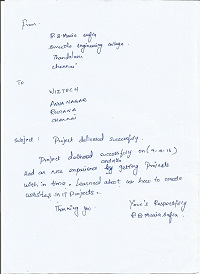 From,
R.B. Maria Sufix
engineering college,
Thandalam
chennai
To
WIZTECH
ANNA NAGAR
CHENNAI
Subject : Project delivered successfully.
Project delivered successfully on (9-2-15)
And as nice experience by getting Projects
with in time. Learned about how to create
websites in IT Projects.
Thanking you.
Your's Respectfully
R.B Maria Sufix.